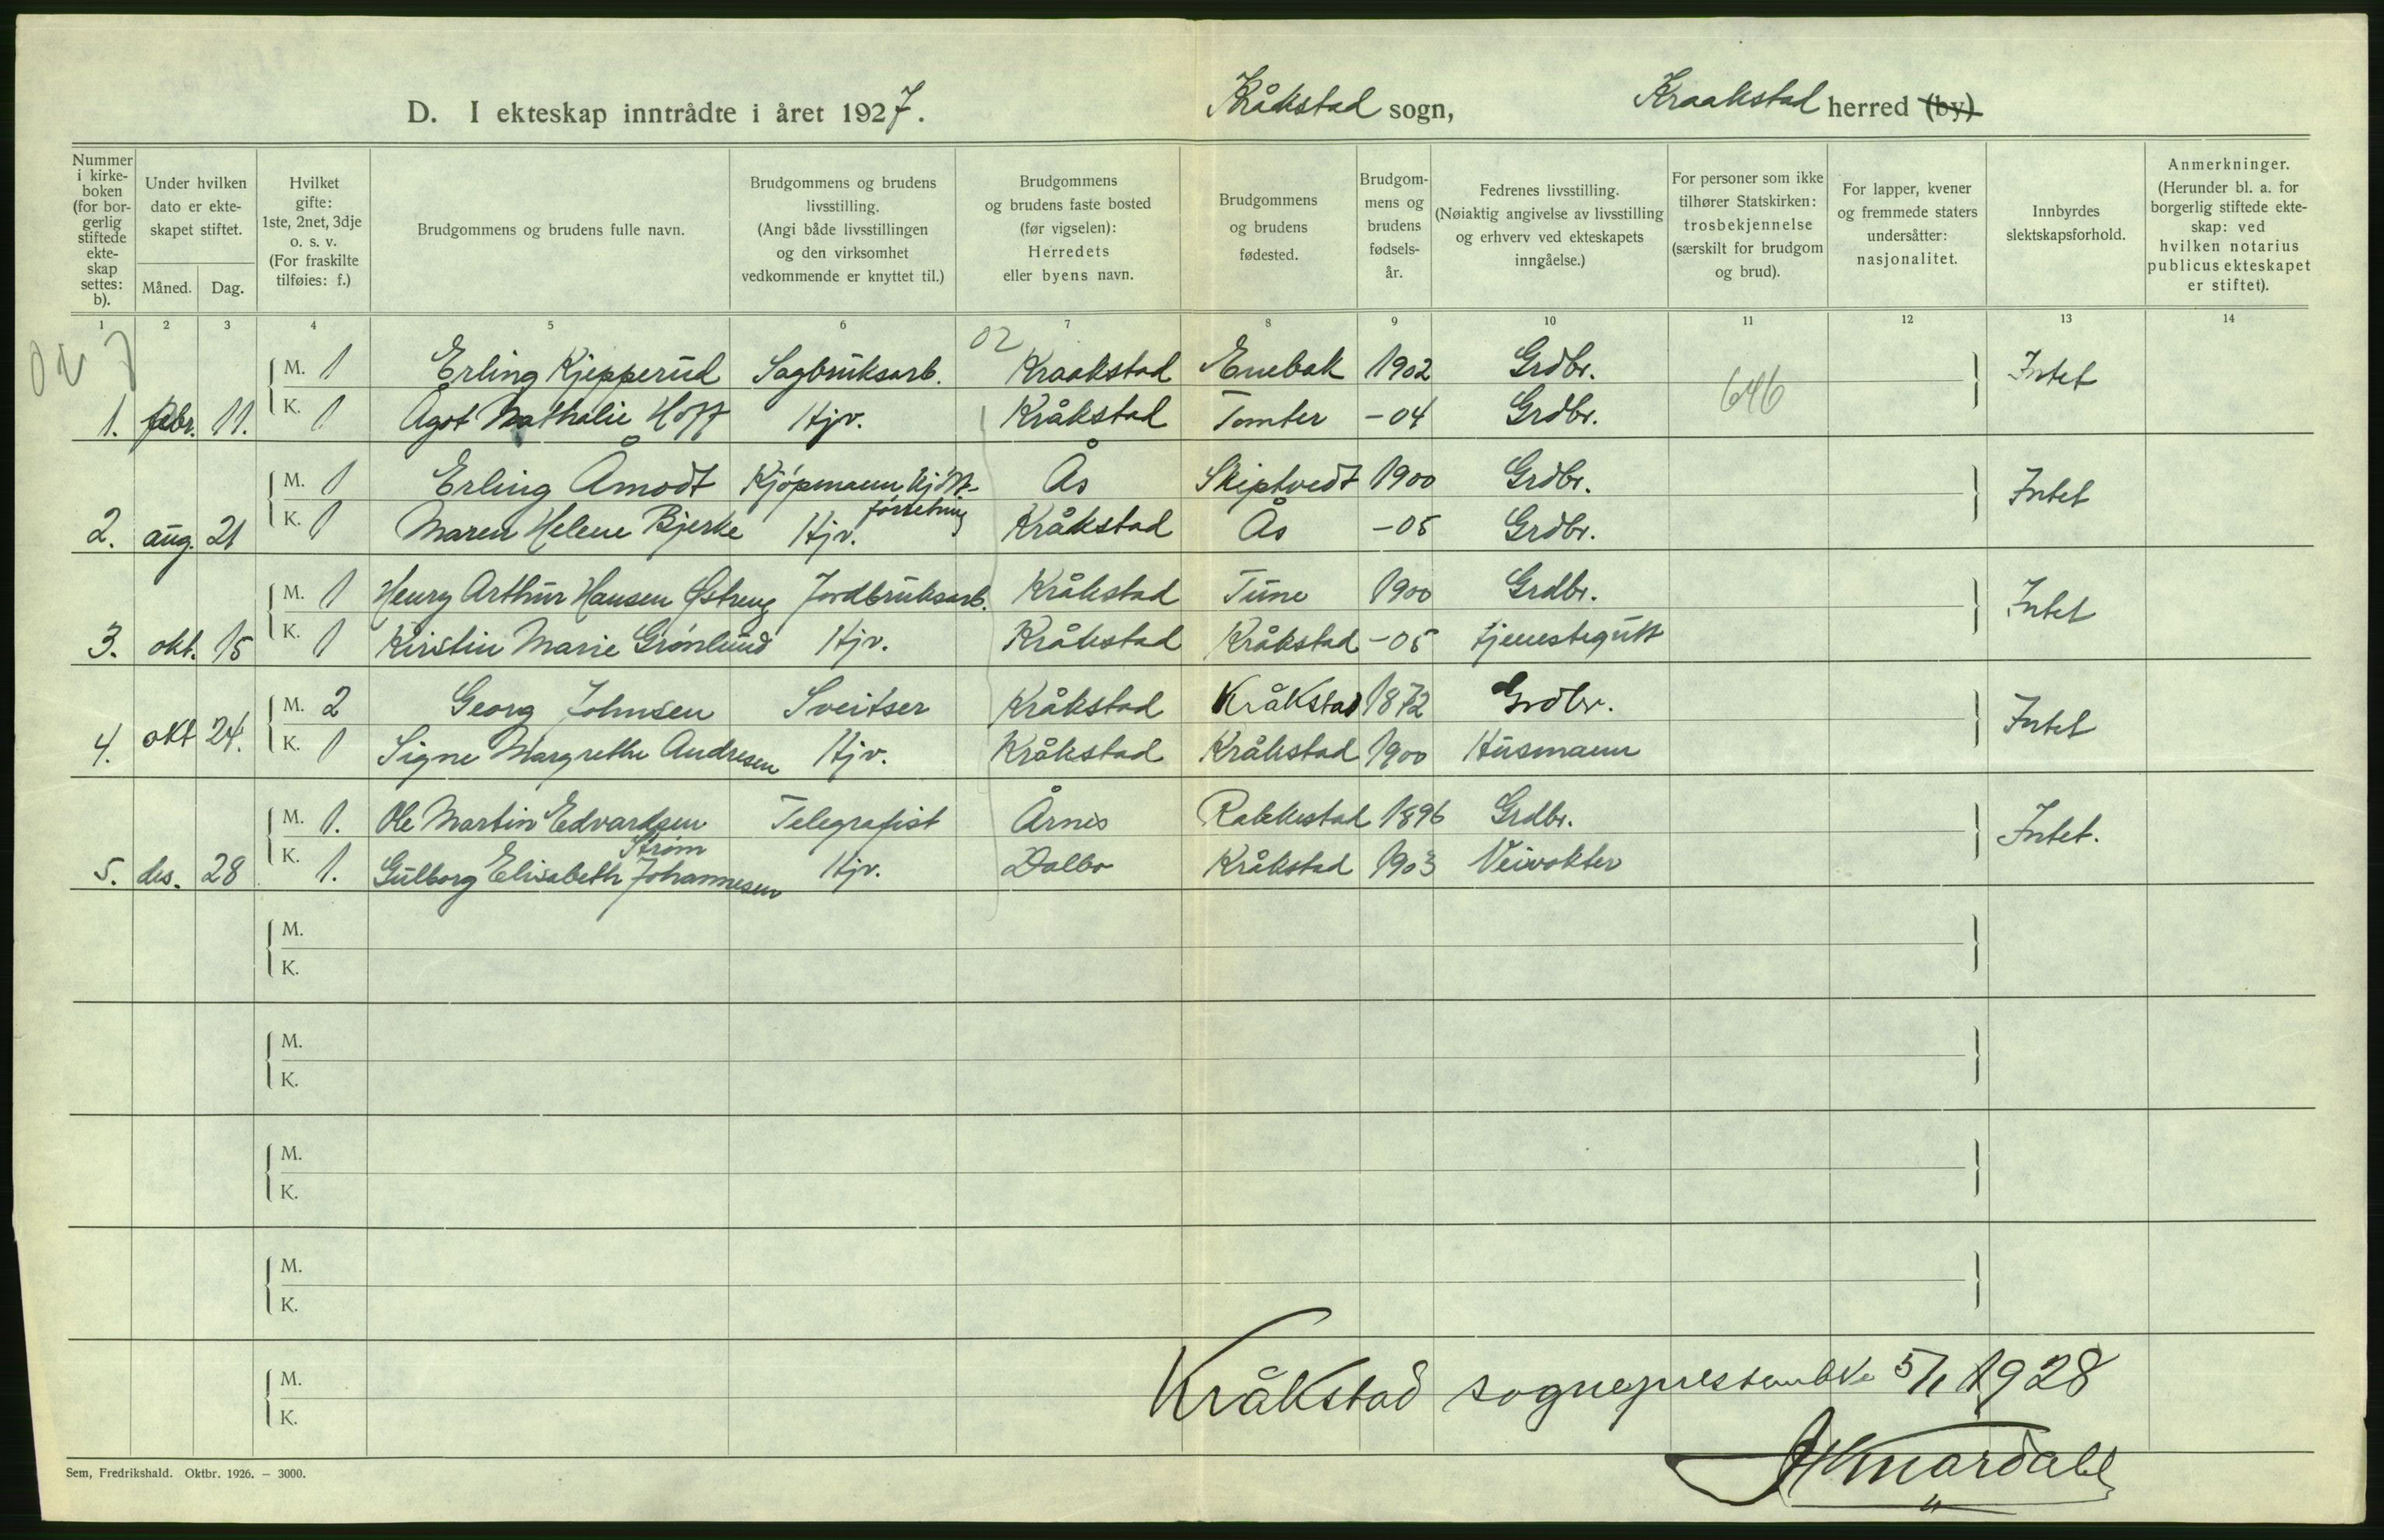 D. I ekteskap inntrådte i året 1927. Kråkstad sogn, Kraakstad herred (by)
Nummer i kirke-boken (for bor-gerlig stiftede ekte-skap settes: b).
Under hvilken dato er ekte-skapet stiftet.
Måned. Dag.
Hvilket gifte: 1ste, 2net, 3dje o. s. v. (For fraskilte tilføies: f.)
Brudgommens og brudens fulle navn.
Brudgommens og brudens livsstilling. (Angi både livsstillingen og den virksomhet vedkommende er knyttet til.)
Brudgommens og brudens faste bosted (før vigselen): Herredets eller byens navn.
Brudgommens og brudens fødested.
Brudgom-mens og brudens fødsels-år.
Fedrenes livsstilling. (Nøiaktig angivelse av livsstilling og erhverv ved ekteskapets inngåelse.)
For personer som ikke tilhører Statskirken: trosbekjennelse (særskilt for brudgom og brud).
For lapper, kvener og fremmede staters undersåtter: nasjonalitet.
Innbyrdes slektskapsforhold.
Anmerkninger. (Herunder bl. a. for borgerlig stiftede ekte-skap: ved hvilken notarius publicus ekteskapet er stiftet).
1 2 3 4 5 6 7 8 9 10 11 12 13 14
02
M. 1 Erling Kjepperud Sagbruksarb. Kraakstad Enebak 1902 Grdbr. Intet
646
1. febr. 11. K. 1 Ågot Nathalie Hoff Hjv. Kråkstad Tomter -04 Grdbr.
M. 1 Erling Åmodt Kjøpmann kjøtt- Ås Skiptvedt 1900 Grdbr. Intet
forretning
2. aug. 21 K. 1 Maren Helene Bjerke Hjv. Kråkstad Ås -05 Grdbr.
M. 1 Henry Arthur Hansen Østreng Jordbruksarb. Kråkstad Tune 1900 Grdbr. Intet
3. okt. 15 K. 1 Kirstin Marie Grønlund Hjv. Kråkstad Kråkstad -05 tjenestegutt
M. 2 Georg Johnsen Sveitser Kråkstad Kråkstad 1872 Grdbr. Intet
4. okt 24. K. 1 Signe Margrethe Andresen Hjv. Kråkstad Kråkstad 1900 Husmann
M. 1. Ole Martin Edvardsen Telegrafist Årnes Rakkestad 1896 Grdbr. Intet.
Strøm
5. des. 28 K. 1. Gulborg Elisabeth Johannesen Hjv. Dalbo Kråkstad 1903 Veivokter
M.
K.
M.
K.
M.
K.
M.
K.
M.
K.
Kråkstad sogneprestembede 5/1 1928
Sem, Fredrikshald. Oktbr. 1926. — 3000.